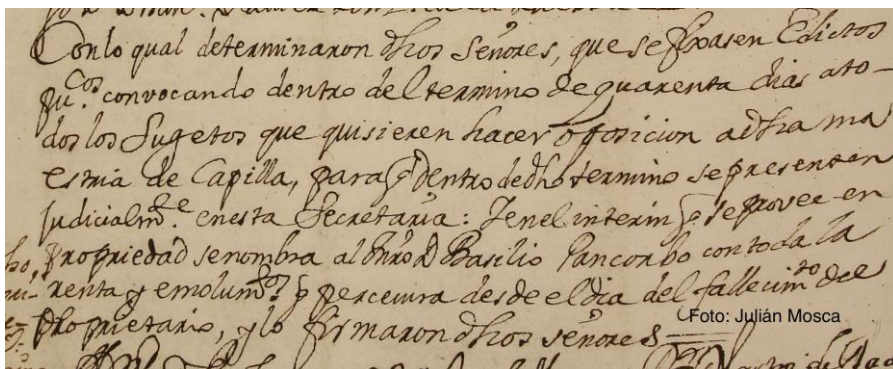 Con lo qual determinaron dhos Señores, que se fixasen Edictos
pu.cos convocando dentro del termino de quarenta dias ato-
dos los Sugetos que quisieren hacer oposicion a dha ma
estria de Capilla, para q.e dentro de dho termino se presenten
Judicialm.te en esta Secretaria: Y en el interin q se provee en
Propriedad se nombra al Mro D Basilio Pancorbo con toda la
renta y emolum.tos q percevira desde el dia del fallecim.to del
Proprietario, y lo firmaron dhos señores
Foto: Julián Mosca